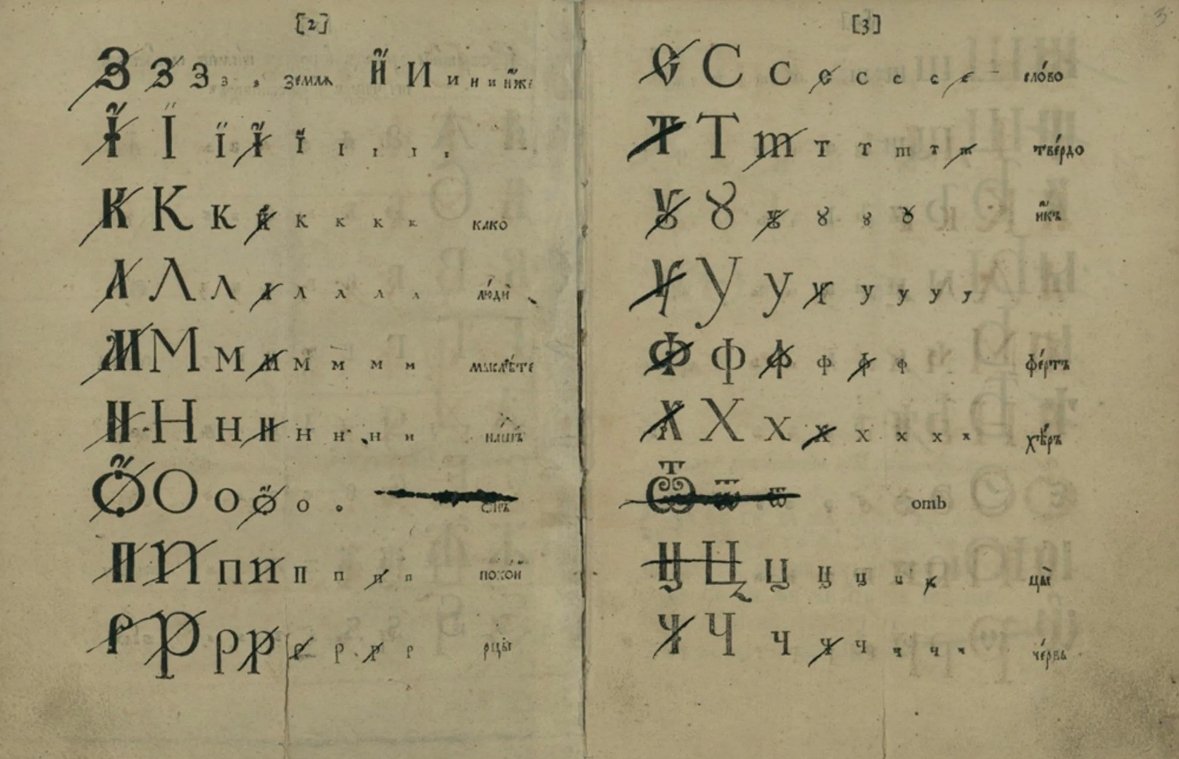 [2]
З З З з з землѧ И И и н и и иже
І І ї ї ї і і і і
К К к к к к к к како
Л Л л л л л л л люди
М М м м м м м м мыслѣте
Н Н н н н н н н нашъ
О О о о о о онъ
П П п п п п п п покой
Р Р р р р р р р рцы
[3]
С С с с с с с с с слово
Т Т т т т т т т твердо
Ꙋ Ꙋ ꙋ ꙋ ꙋ ꙋ икъ
У У у у у у у у
Ф Ф ф ф ф ф фертъ
Х Х х х х х х х хѣръ
Ѿ ѿ ѿ отъ
Ц Ц ц ц ц ц ц цы
Ч Ч ч ч ч ч ч ч червь
3